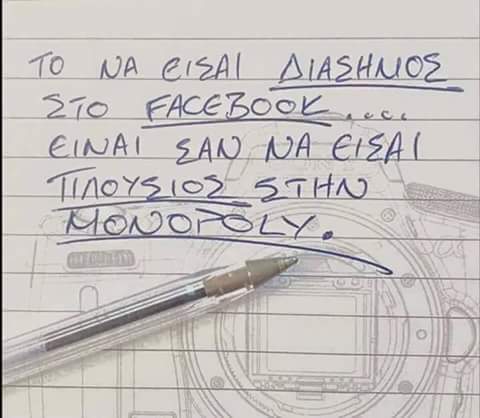 ΤΟ ΝΑ ΕΙΣΑΙ ΔΙΑΣΗΜΟΣ
ΣΤΟ FACEBOOK....
ΕΙΝΑΙ ΣΑΝ ΝΑ ΕΙΣΑΙ
ΠΛΟΥΣΙΟΣ ΣΤΗΝ
MONOPOLY.